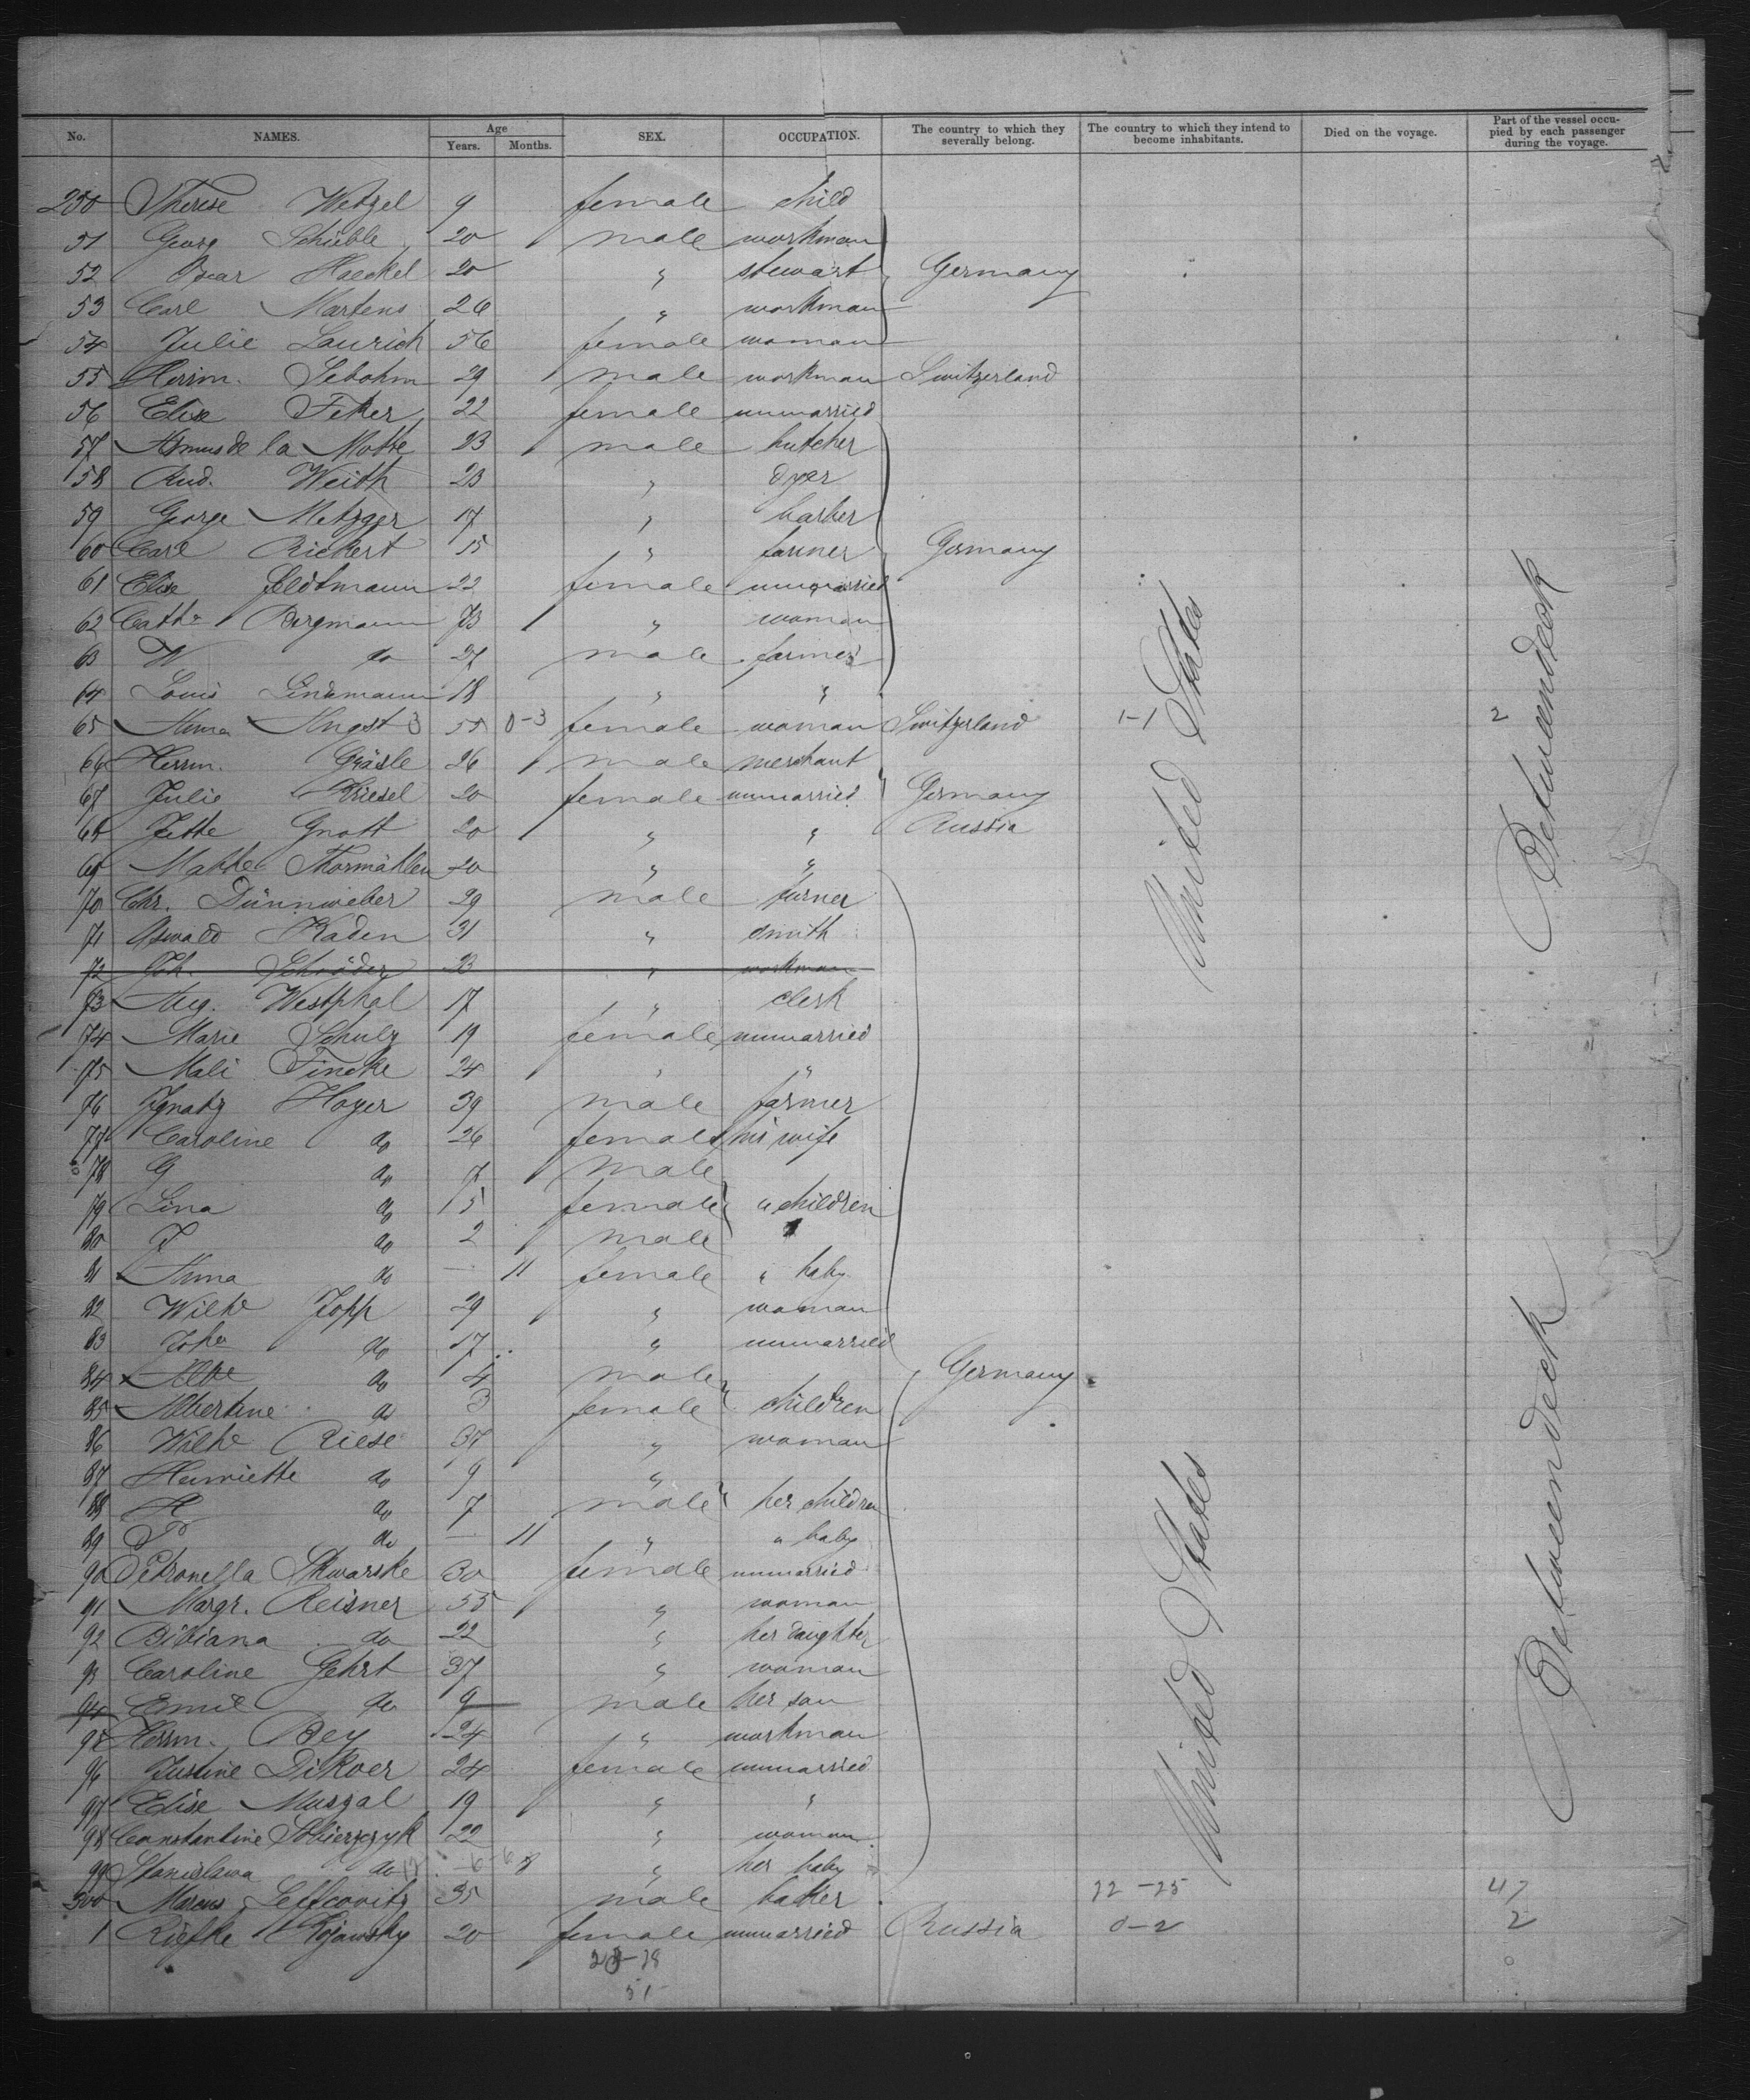 No. NAMES. Age Years. Months. SEX. OCCUPATION. The country to which they severally belong. The country to which they intend to become inhabitants. Died on the voyage. Part of the vessel occupied by each passenger during the voyage.
250 Therese Wetzel 9 female child
51 Georg Schieble 20 male workman
52 Oscar Haeckel 20 " stewart Germany
53 Carl Martens 26 " workman
54 Julie Laurich 56 female woman
55 Herrm. Sebohm 29 male workman Switzerland
56 Elise Feker 22 female unmarried
57 Asmus de la Motte 23 male butcher
58 Rud. Weith 23 " dyer
59 George Metzger 17 " barber
60 Carl Rickert 15 " farmer Germany
61 Elise Feldtmann 22 female unmarried
62 Cathe Bergmann 73 " woman
63 W do 27 male farmer
64 Louis Lindmann 18 " "
65 Anna Angst 3 55 0-3 female woman Switzerland 1-1 2
66 Herrm. Gräsle 26 male merchant
67 Julie Kriesel 20 female unmarried Germany
68 Jette Gnott 20 " " Russia
69 Mathe Thormählen 20 " "
70 Chr. Dünnweber 29 male turner
71 Oswald Kaden 31 " smith
72 Joh. Schröder 23 " workman
73 Aug. Westphal 17 " clerk
74 Marie Schulz 19 female unmarried
75 Mali Fincke 24 " "
76 Ignatz Hoyer 39 male farmer
77 Caroline do 26 female his wife
78 G do 7 male
79 Lina do 5 female " children
80 F do 2 male
81 Anna do — 11 female " baby
82 Wilhe Jopp 29 " woman
83 Johe do 17 " unmarried
84 Albe do 4 male Germany
85 Albertine do 3 female children
86 Wilhe Riese 37 " woman
87 Henriette do 9 "
88 H do 7 male her children
89 P do — 11 " " baby
90 Petronella Skwarske 30 female unmarried
91 Margr. Reisner 55 " woman
92 Bibiana do 22 " her daughter
93 Caroline Gehrt 37 " woman
94 Emil do 9 male her son
95 Herrm. Bey 24 " workman
96 Justine Dikoer 24 female unmarried
97 Elise Muszal 19 " "
98 Constantine Sobierzczyk 22 " woman
99 Stanislawa do — " her baby
300 Marcus Leffcovitz 35 male baker 22-25 47
1 Riefke Kojawsky 20 female unmarried Russia 0-2 2
United States
Betweendeck
United States
Betweendeck
51